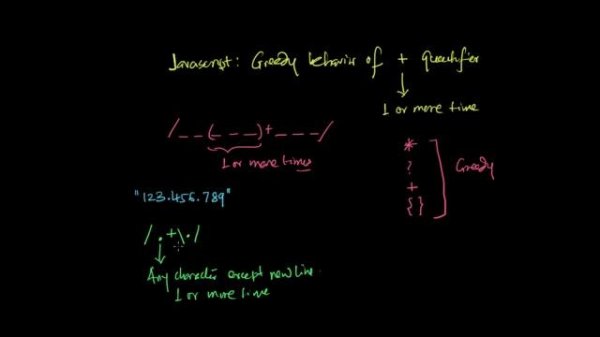 Javascript: Greedy behavior of + quantifier
1 or more time
/_ _(_ _ _)+_ _ _/
1 or more times
*
?
+
{}
Greedy
"123.456.789"
/.+\./
Any character except new line.
1 or more time